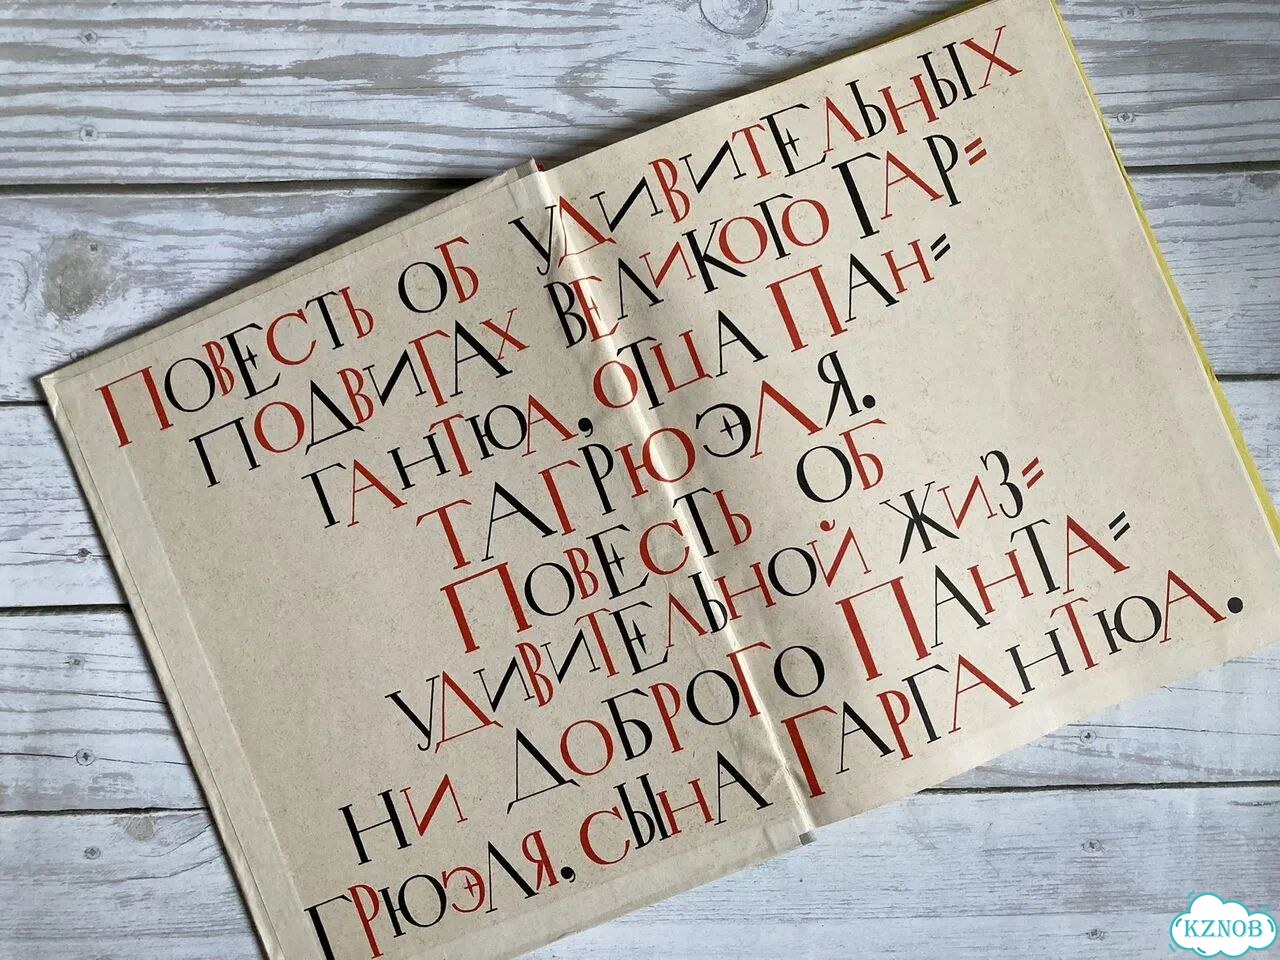 ПОВЕСТЬ ОБ УДИВИТЕЛЬНЫХ
ПОДВИГАХ ВЕЛИКОГО ГАР=
ГАНТЮА, ОТЦА ПАН=
ТАГРЮЭЛЯ.
ПОВЕСТЬ ОБ
УДИВИТЕЛЬНОЙ ЖИЗ=
НИ ДОБРОГО ПАНТА=
ГРЮЭЛЯ, СЫНА ГАРГАНТЮА.
KZNOB